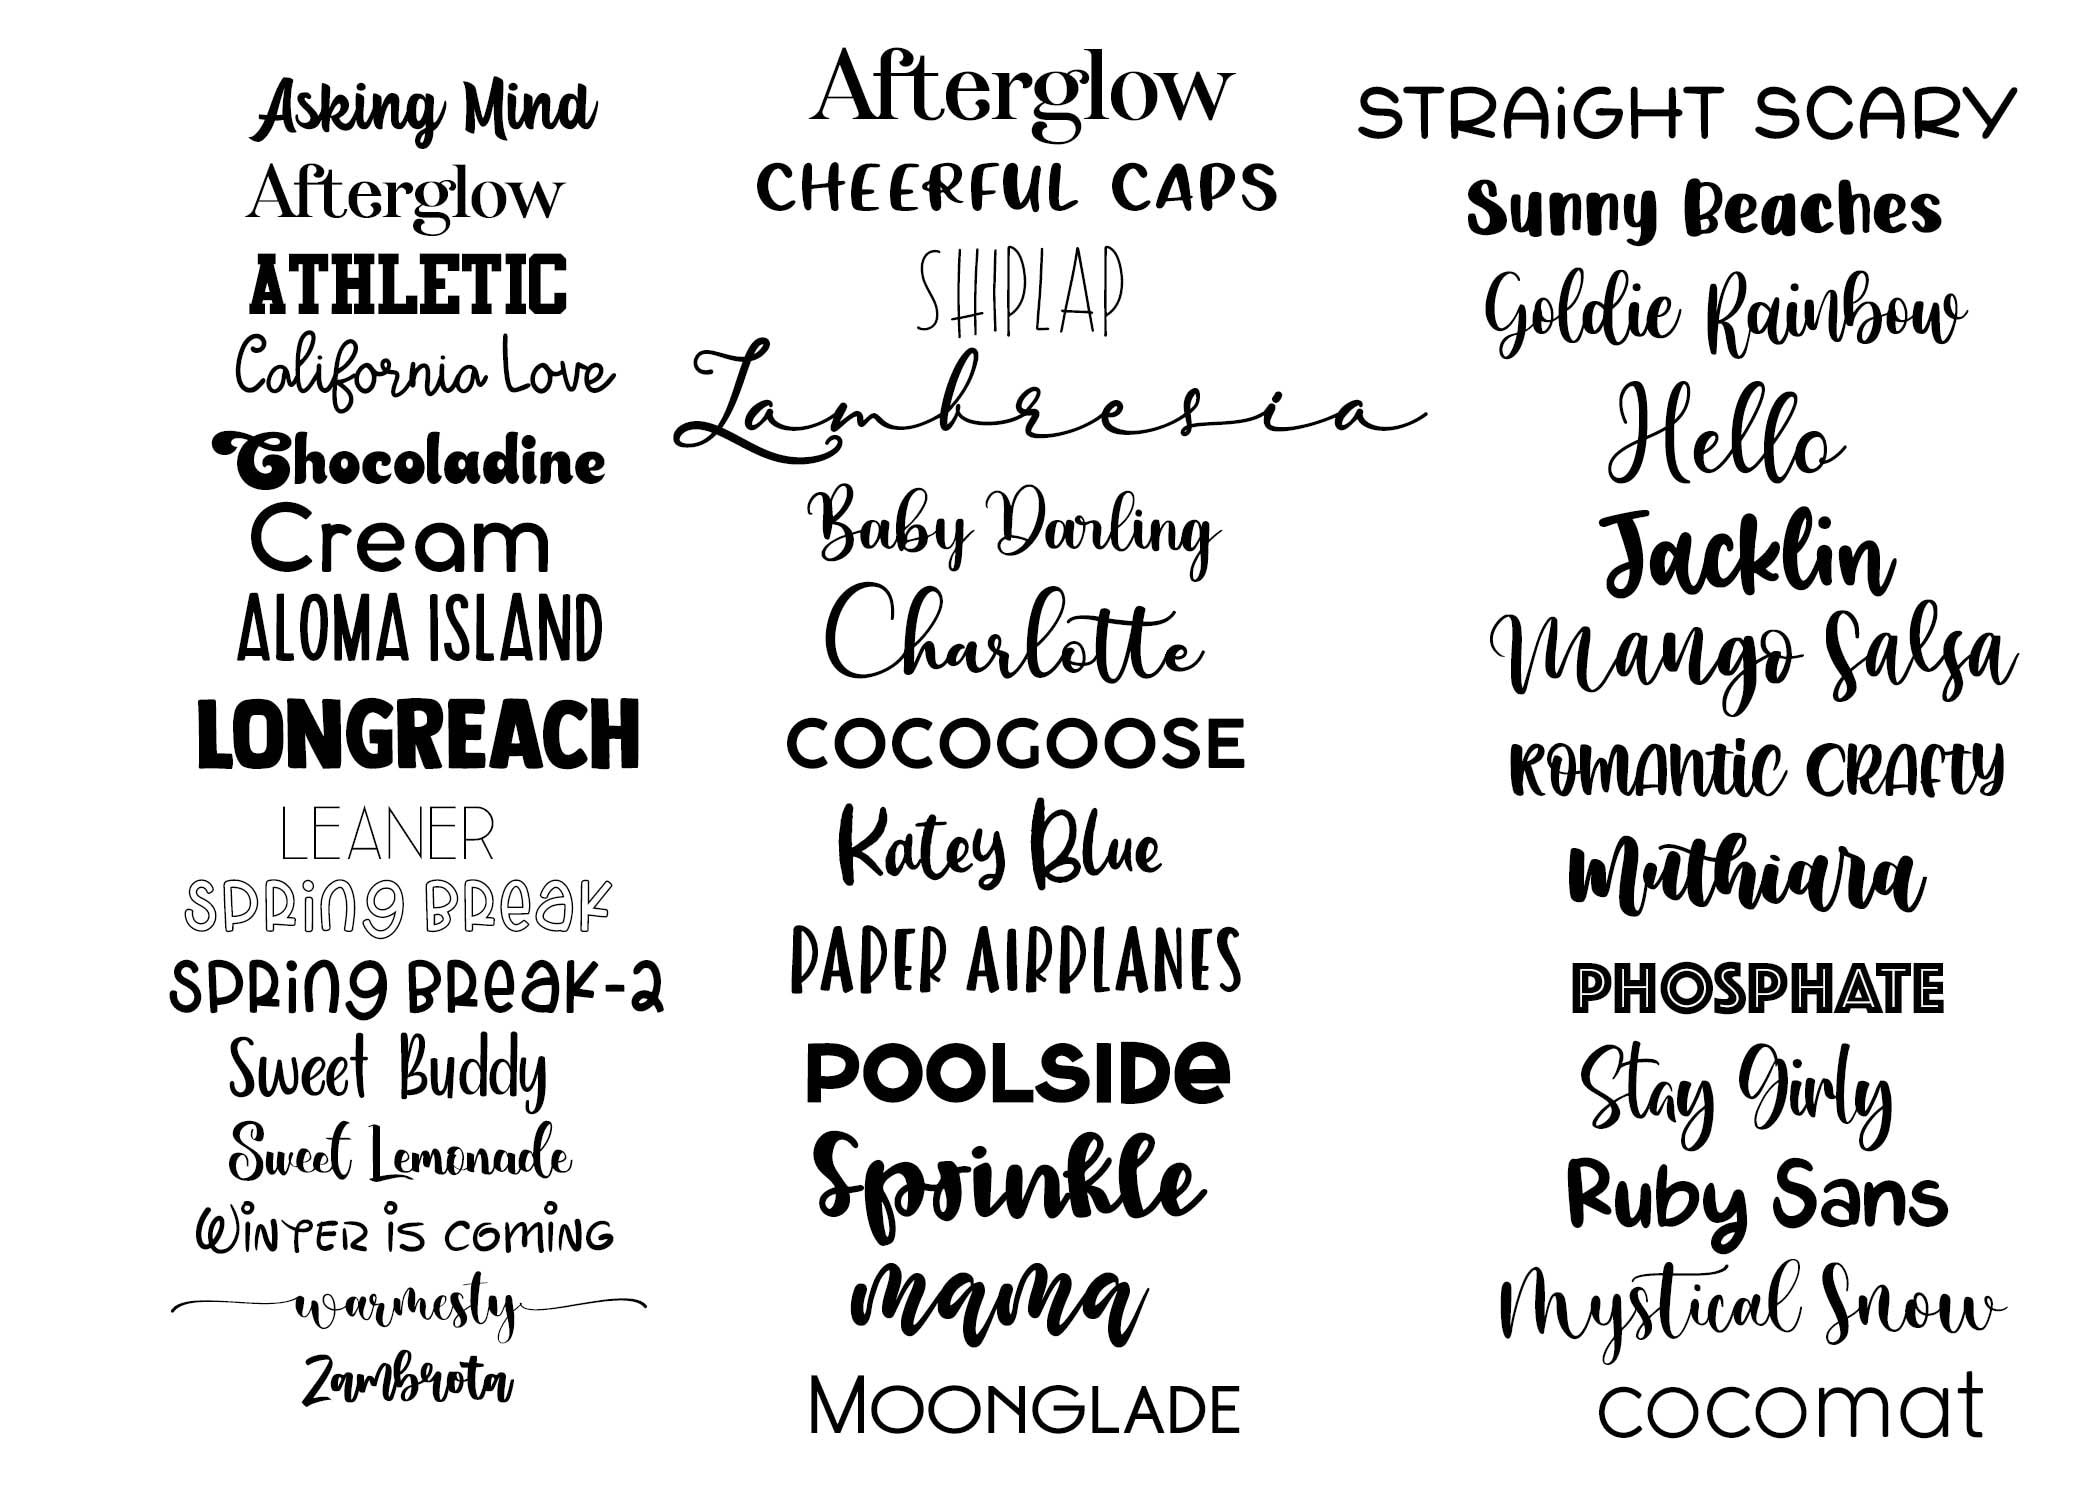 Asking Mind
Afterglow
ATHLETIC
California Love
Chocoladine
Cream
ALOMA ISLAND
LONGREACH
LEANER
SPRing BReaK
SPRing BReaK-2
Sweet Buddy
Sweet Lemonade
Winter is coming
warmesty
Zambrota
Afterglow
CHEERFUL CAPS
SHIPLAP
Lambresia
Baby Darling
Charlotte
COCOGOOSE
Katey Blue
PAPER AIRPLANES
POOLSIDe
Sprinkle
mama
MOONGLADE
STRAiGHT SCARY
Sunny Beaches
Goldie Rainbow
Hello
Jacklin
Mango Salsa
ROMANtic CRAfty
Muthiara
PHOSPHATE
Stay Girly
Ruby Sans
Mystical Snow
cocomat